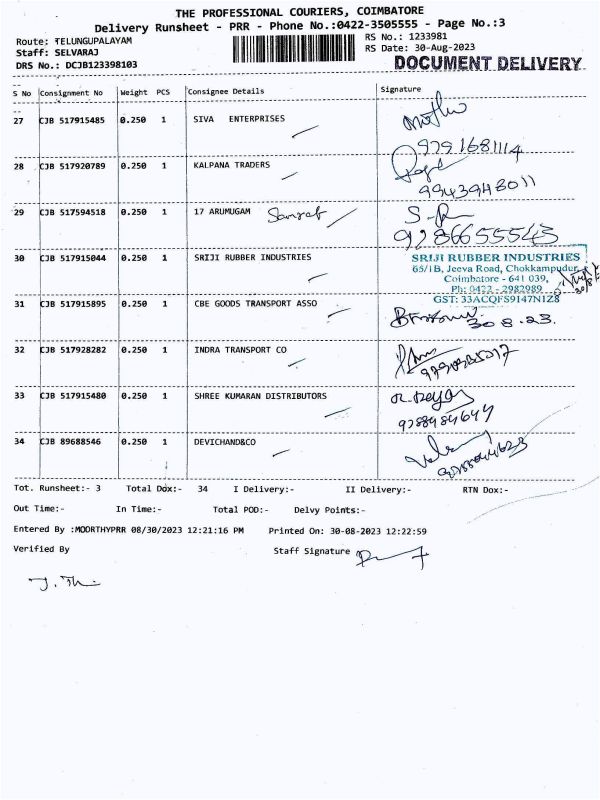 THE PROFESSIONAL COURIERS, COIMBATORE
Delivery Runsheet - PRR - Phone No.:0422-3505555 - Page No.:3
Route: TELUNGUPALAYAM
RS No.: 1233981
Staff: SELVARAJ
RS Date: 30-Aug-2023
DRS No.: DCJB123398103
DOCUMENT DELIVERY
S No Consignment No Weight PCS Consignee Details Signature
27 CJB 517915485 0.250 1 SIVA ENTERPRISES
9791681114
28 CJB 517920789 0.250 1 KALPANA TRADERS
9943948011
29 CJB 517594518 0.250 1 17 ARUMUGAM
9286655543
30 CJB 517915044 0.250 1 SRIJI RUBBER INDUSTRIES
SRIJI RUBBER INDUSTRIES
65/1B, Jeeva Road, Chokkampudur,
Coimbatore - 641 039,
Ph: 0422 - 2982989
GST: 33ACQFS9147N1Z8
31 CJB 517915895 0.250 1 CBE GOODS TRANSPORT ASSO
30 8.23.
32 CJB 517928282 0.250 1 INDRA TRANSPORT CO
33 CJB 517915480 0.250 1 SHREE KUMARAN DISTRIBUTORS
34 CJB 89688546 0.250 1 DEVICHAND&CO
Tot. Runsheet:- 3 Total Dox:- 34 I Delivery:- II Delivery:- RTN Dox:-
Out Time:- In Time:- Total POD:- Delvy Points:-
Entered By :MOORTHYPRR 08/30/2023 12:21:16 PM Printed On: 30-08-2023 12:22:59
Verified By Staff Signature